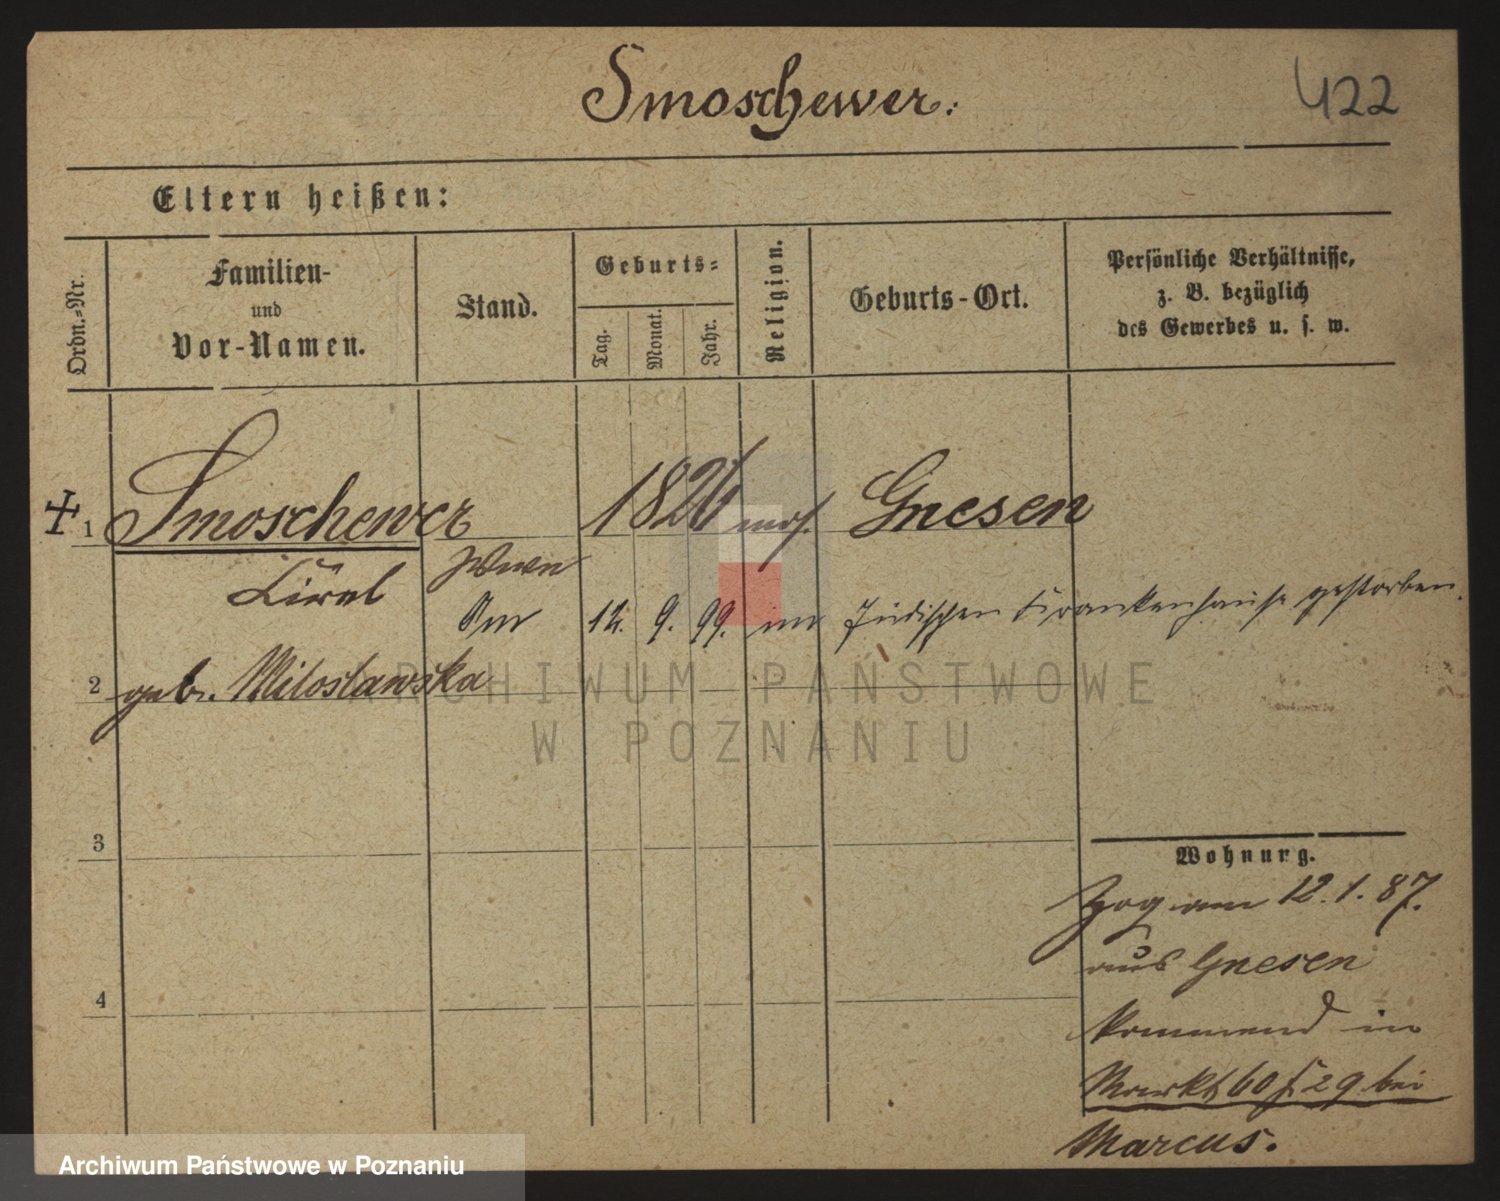 Smoschewer.
422
Eltern heißen:
Ordn.-Nr.
Familien-
und
Vor-Namen.
Stand.
Geburts-
Tag.
Monat.
Jahr.
Religion.
Geburts-Ort.
Persönliche Verhältnisse,
z. B. bezüglich
des Gewerbes u. s. w.
1 Smoschewer 1826 mos. Gnesen
Wwe
Am 12. 9. 99. im Jüdischen Krankenhause gestorben.
2 geb. Miloslawska
3
4
Wohnung.
Zog am 12.1.87.
aus Gnesen
kommend in
Markt 60 29 bei
Marcus.
ARCHIWUM PAŃSTWOWE
W POZNANIU
Archiwum Państwowe w Poznaniu